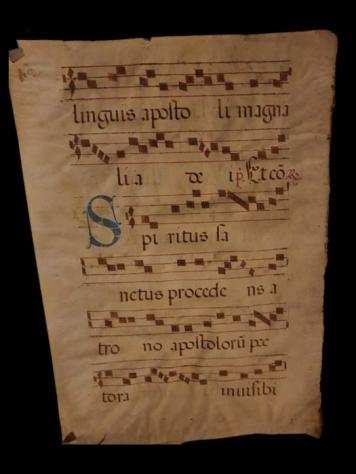 linguis aposto li magna
li a de ip̄. Et cō
Spi ritus sa
nctus procede ns a
tro no apostolorū pec
tora invisibi